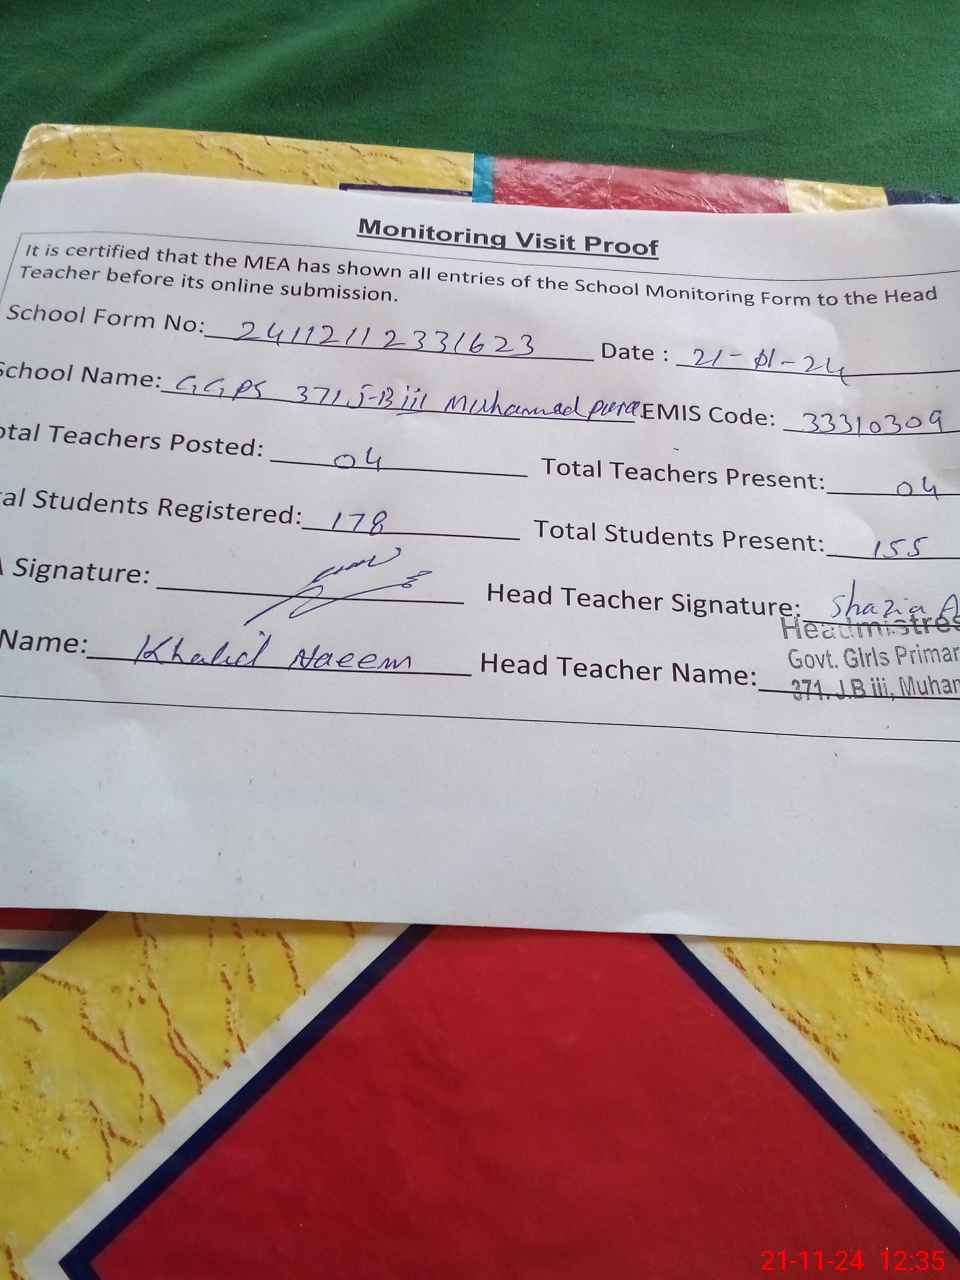 Monitoring Visit Proof
It is certified that the MEA has shown all entries of the School Monitoring Form to the Head
Teacher before its online submission.
School Form No: 24112112331623 Date : 21-11-24
School Name: GGPS 371 J-B iii Muhammad pura EMIS Code: 33310309
otal Teachers Posted: 04 Total Teachers Present: 04
al Students Registered: 178 Total Students Present: 155
A Signature: Head Teacher Signature: Shazia A
Headmistres
Name: Khalid Naeem Head Teacher Name: Govt. Girls Primar
371. J.B iii, Muham
21-11-24 12:35